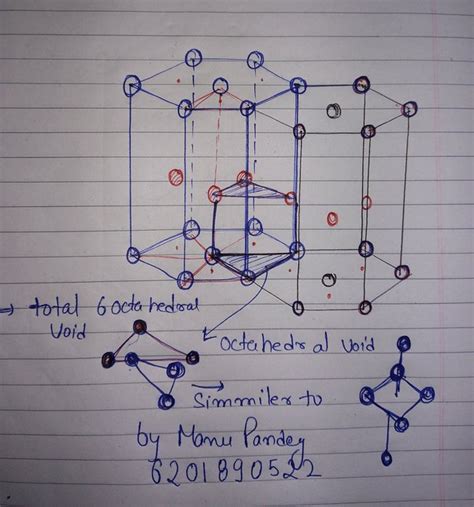 → total 6 octahedral
void
octahedral void
→ Simmiler to
by Manu Pandey
6201890522